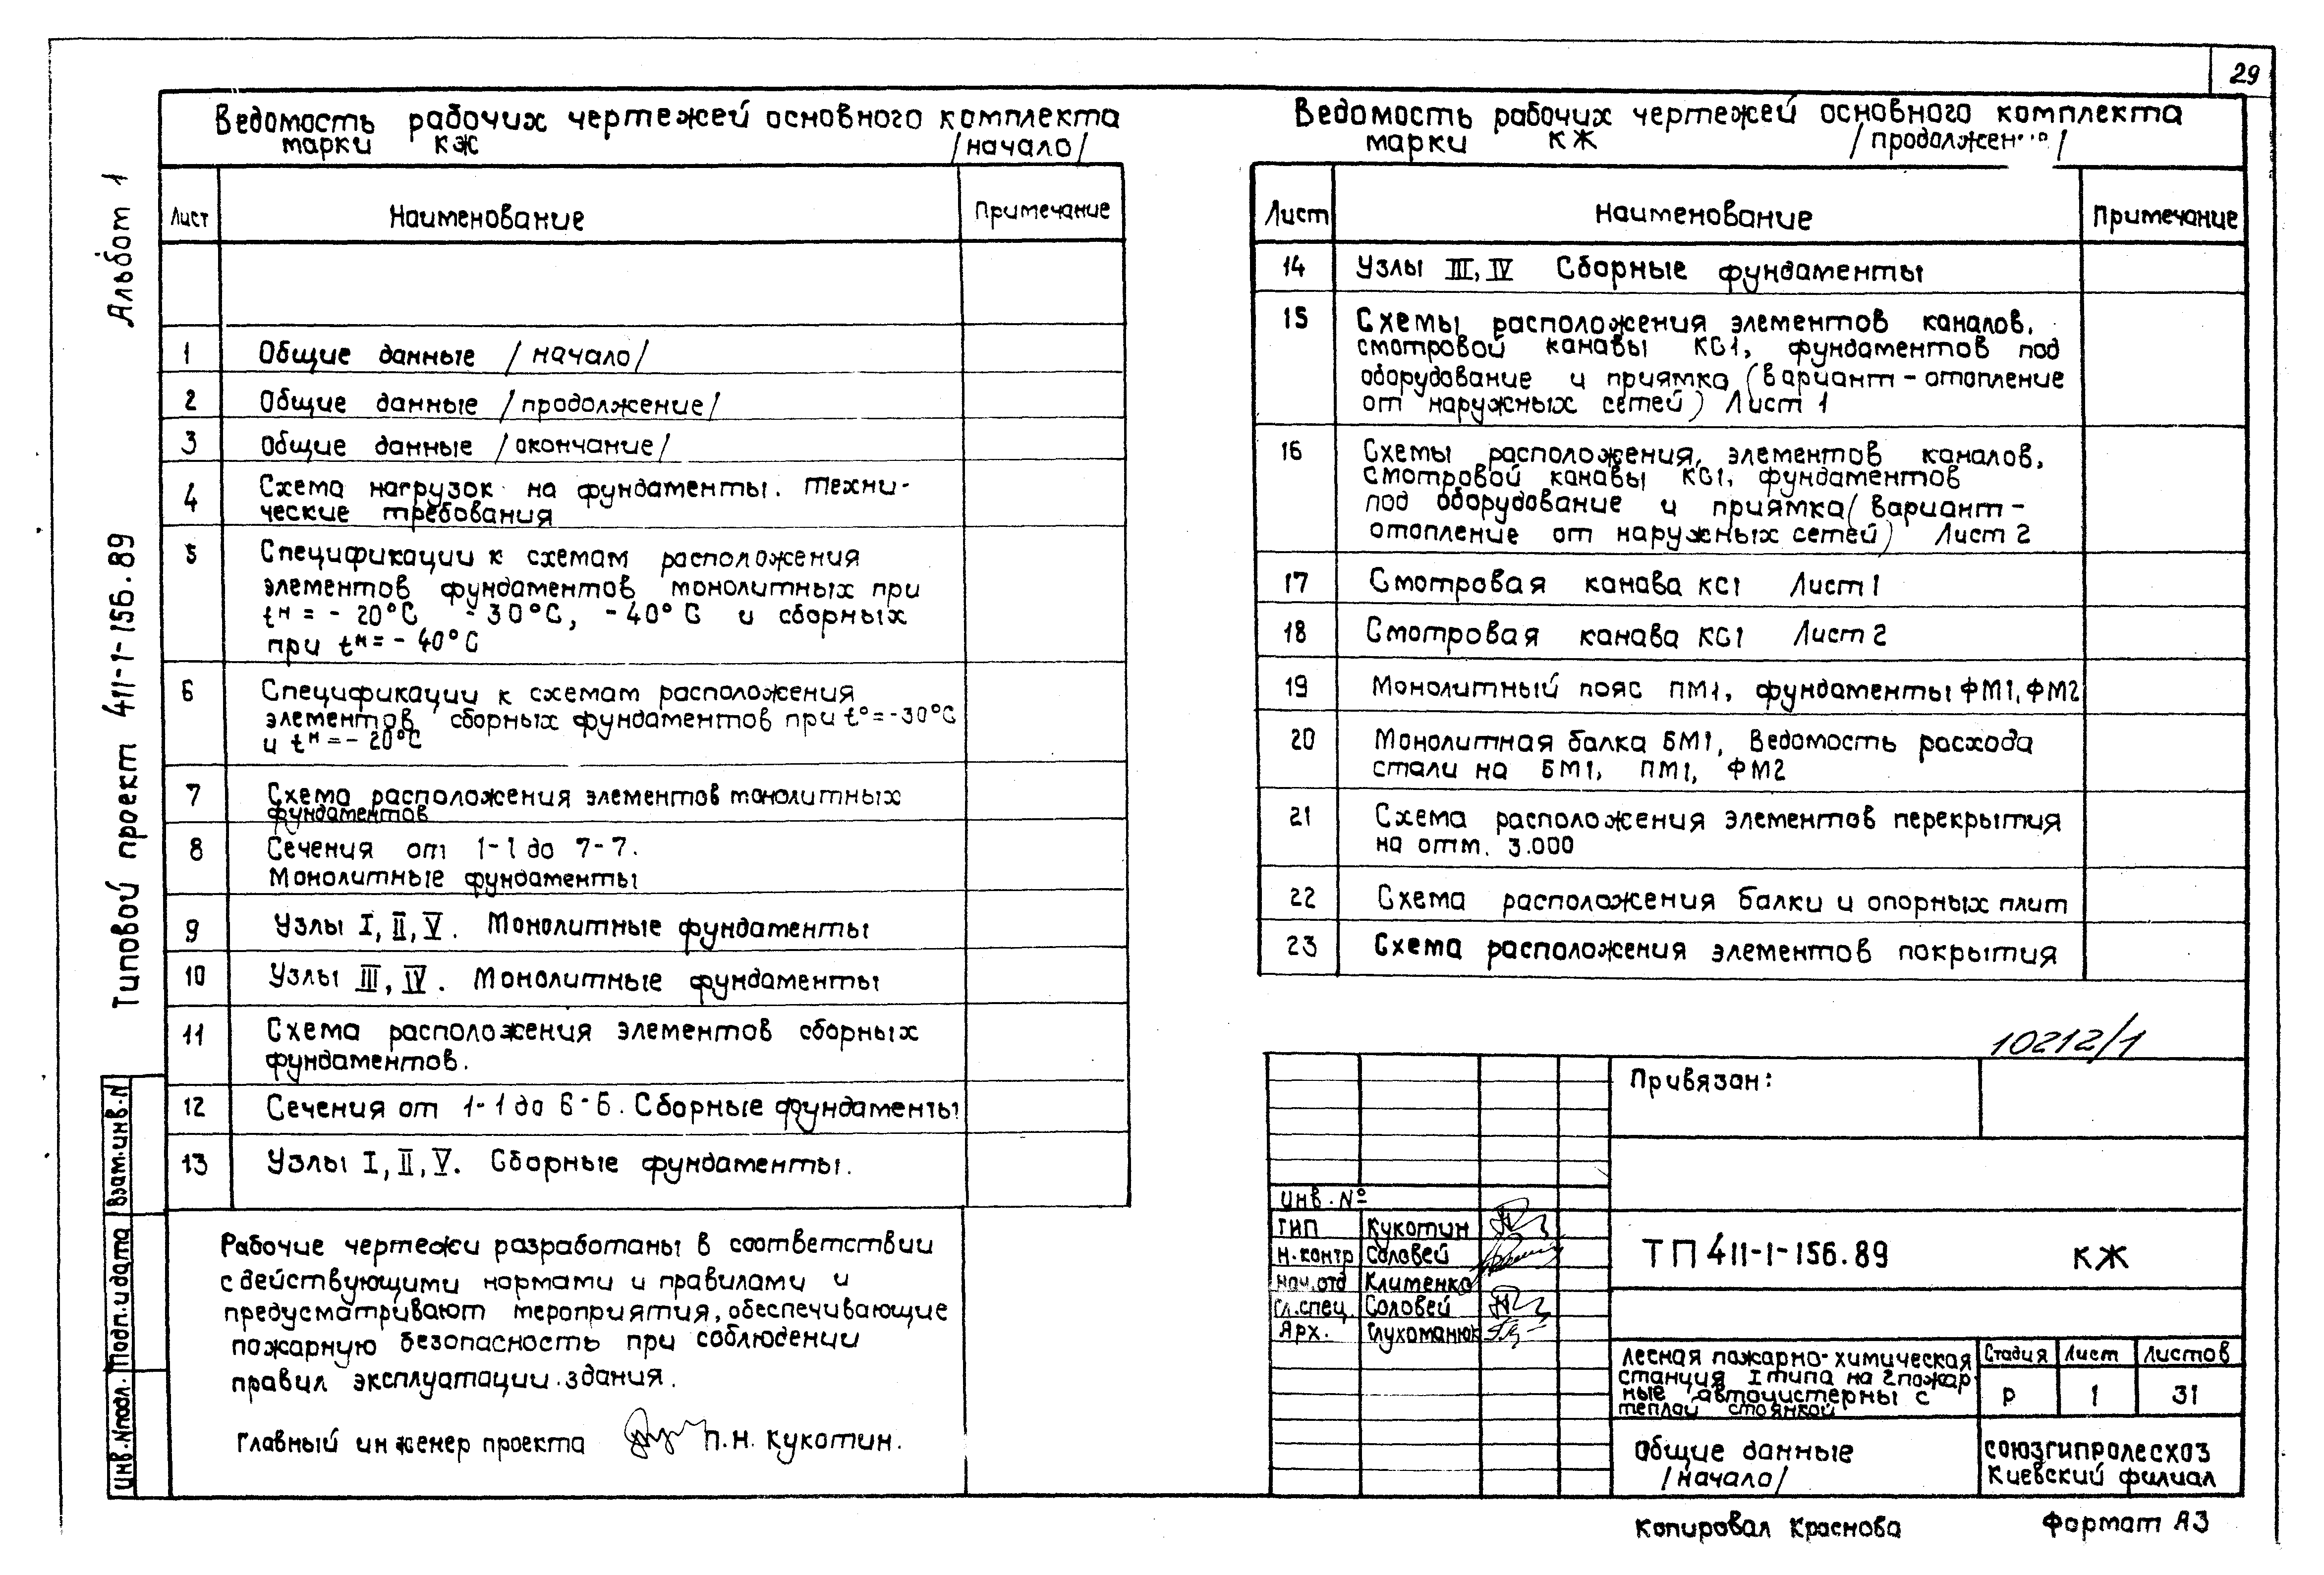 29
Альбом 1
Типовой проект 411-1-156.89
Ведомость рабочих чертежей основного комплекта
марки КЖ /начало/
Лист Наименование Примечание
1 Общие данные /начало/
2 Общие данные /продолжение/
3 Общие данные /окончание/
4 Схема нагрузок на фундаменты. Техни-
ческие требования
5 Спецификации к схемам расположения
элементов фундаментов монолитных при
tн = - 20°С - 30°С, - 40°С и сборных
при tн = - 40°С
6 Спецификации к схемам расположения
элементов сборных фундаментов при t° = -30°С
и tн = - 20°С
7 Схема расположения элементов монолитных
фундаментов
8 Сечения от 1-1 до 7-7.
Монолитные фундаменты
9 Узлы I, II, V. Монолитные фундаменты
10 Узлы III, IV. Монолитные фундаменты
11 Схема расположения элементов сборных
фундаментов.
12 Сечения от 1-1 до 6-6. Сборные фундаменты
13 Узлы I, II, V. Сборные фундаменты.
Рабочие чертежи разработаны в соответствии
с действующими нормами и правилами и
предусматривают мероприятия, обеспечивающие
пожарную безопасность при соблюдении
правил эксплуатации здания.
Главный инженер проекта П.Н. Кукотин.
Взам.инв.N
Подп.и дата
Инв.Nподл.
Ведомость рабочих чертежей основного комплекта
марки КЖ /продолжен
Лист Наименование Примечание
14 Узлы III, IV Сборные фундаменты
15 Схемы расположения элементов каналов,
смотровой канавы КС1, фундаментов под
оборудование и приямка (вариант - отопление
от наружных сетей) Лист 1
16 Схемы расположения элементов каналов,
смотровой канавы КС1, фундаментов
под оборудование и приямка (вариант -
отопление от наружных сетей) Лист 2
17 Смотровая канава КС1 Лист 1
18 Смотровая канава КС1 Лист 2
19 Монолитный пояс ПМ1, фундаменты ФМ1, ФМ2
20 Монолитная балка БМ1, Ведомость расхода
стали на БМ1, ПМ1, ФМ2
21 Схема расположения элементов перекрытия
на отм. 3.000
22 Схема расположения балки и опорных плит
23 Схема расположения элементов покрытия
10212/1
Привязан:
Инв. №
ГИП Кукотин
Н.контр Соловей
Нач.отд Клименко
Гл.спец. Соловей
Арх. Глухоманюк
ТП 411-1-156.89 КЖ
Лесная пожарно-химическая
станция I типа на 2 пожар
ные автоцистерны с
теплой стоянкой
Стадия Лист Листов
Р 1 31
Общие данные
/начало/
СОЮЗГИПРОЛЕСХОЗ
Киевский филиал
Копировал Краснова Формат А3